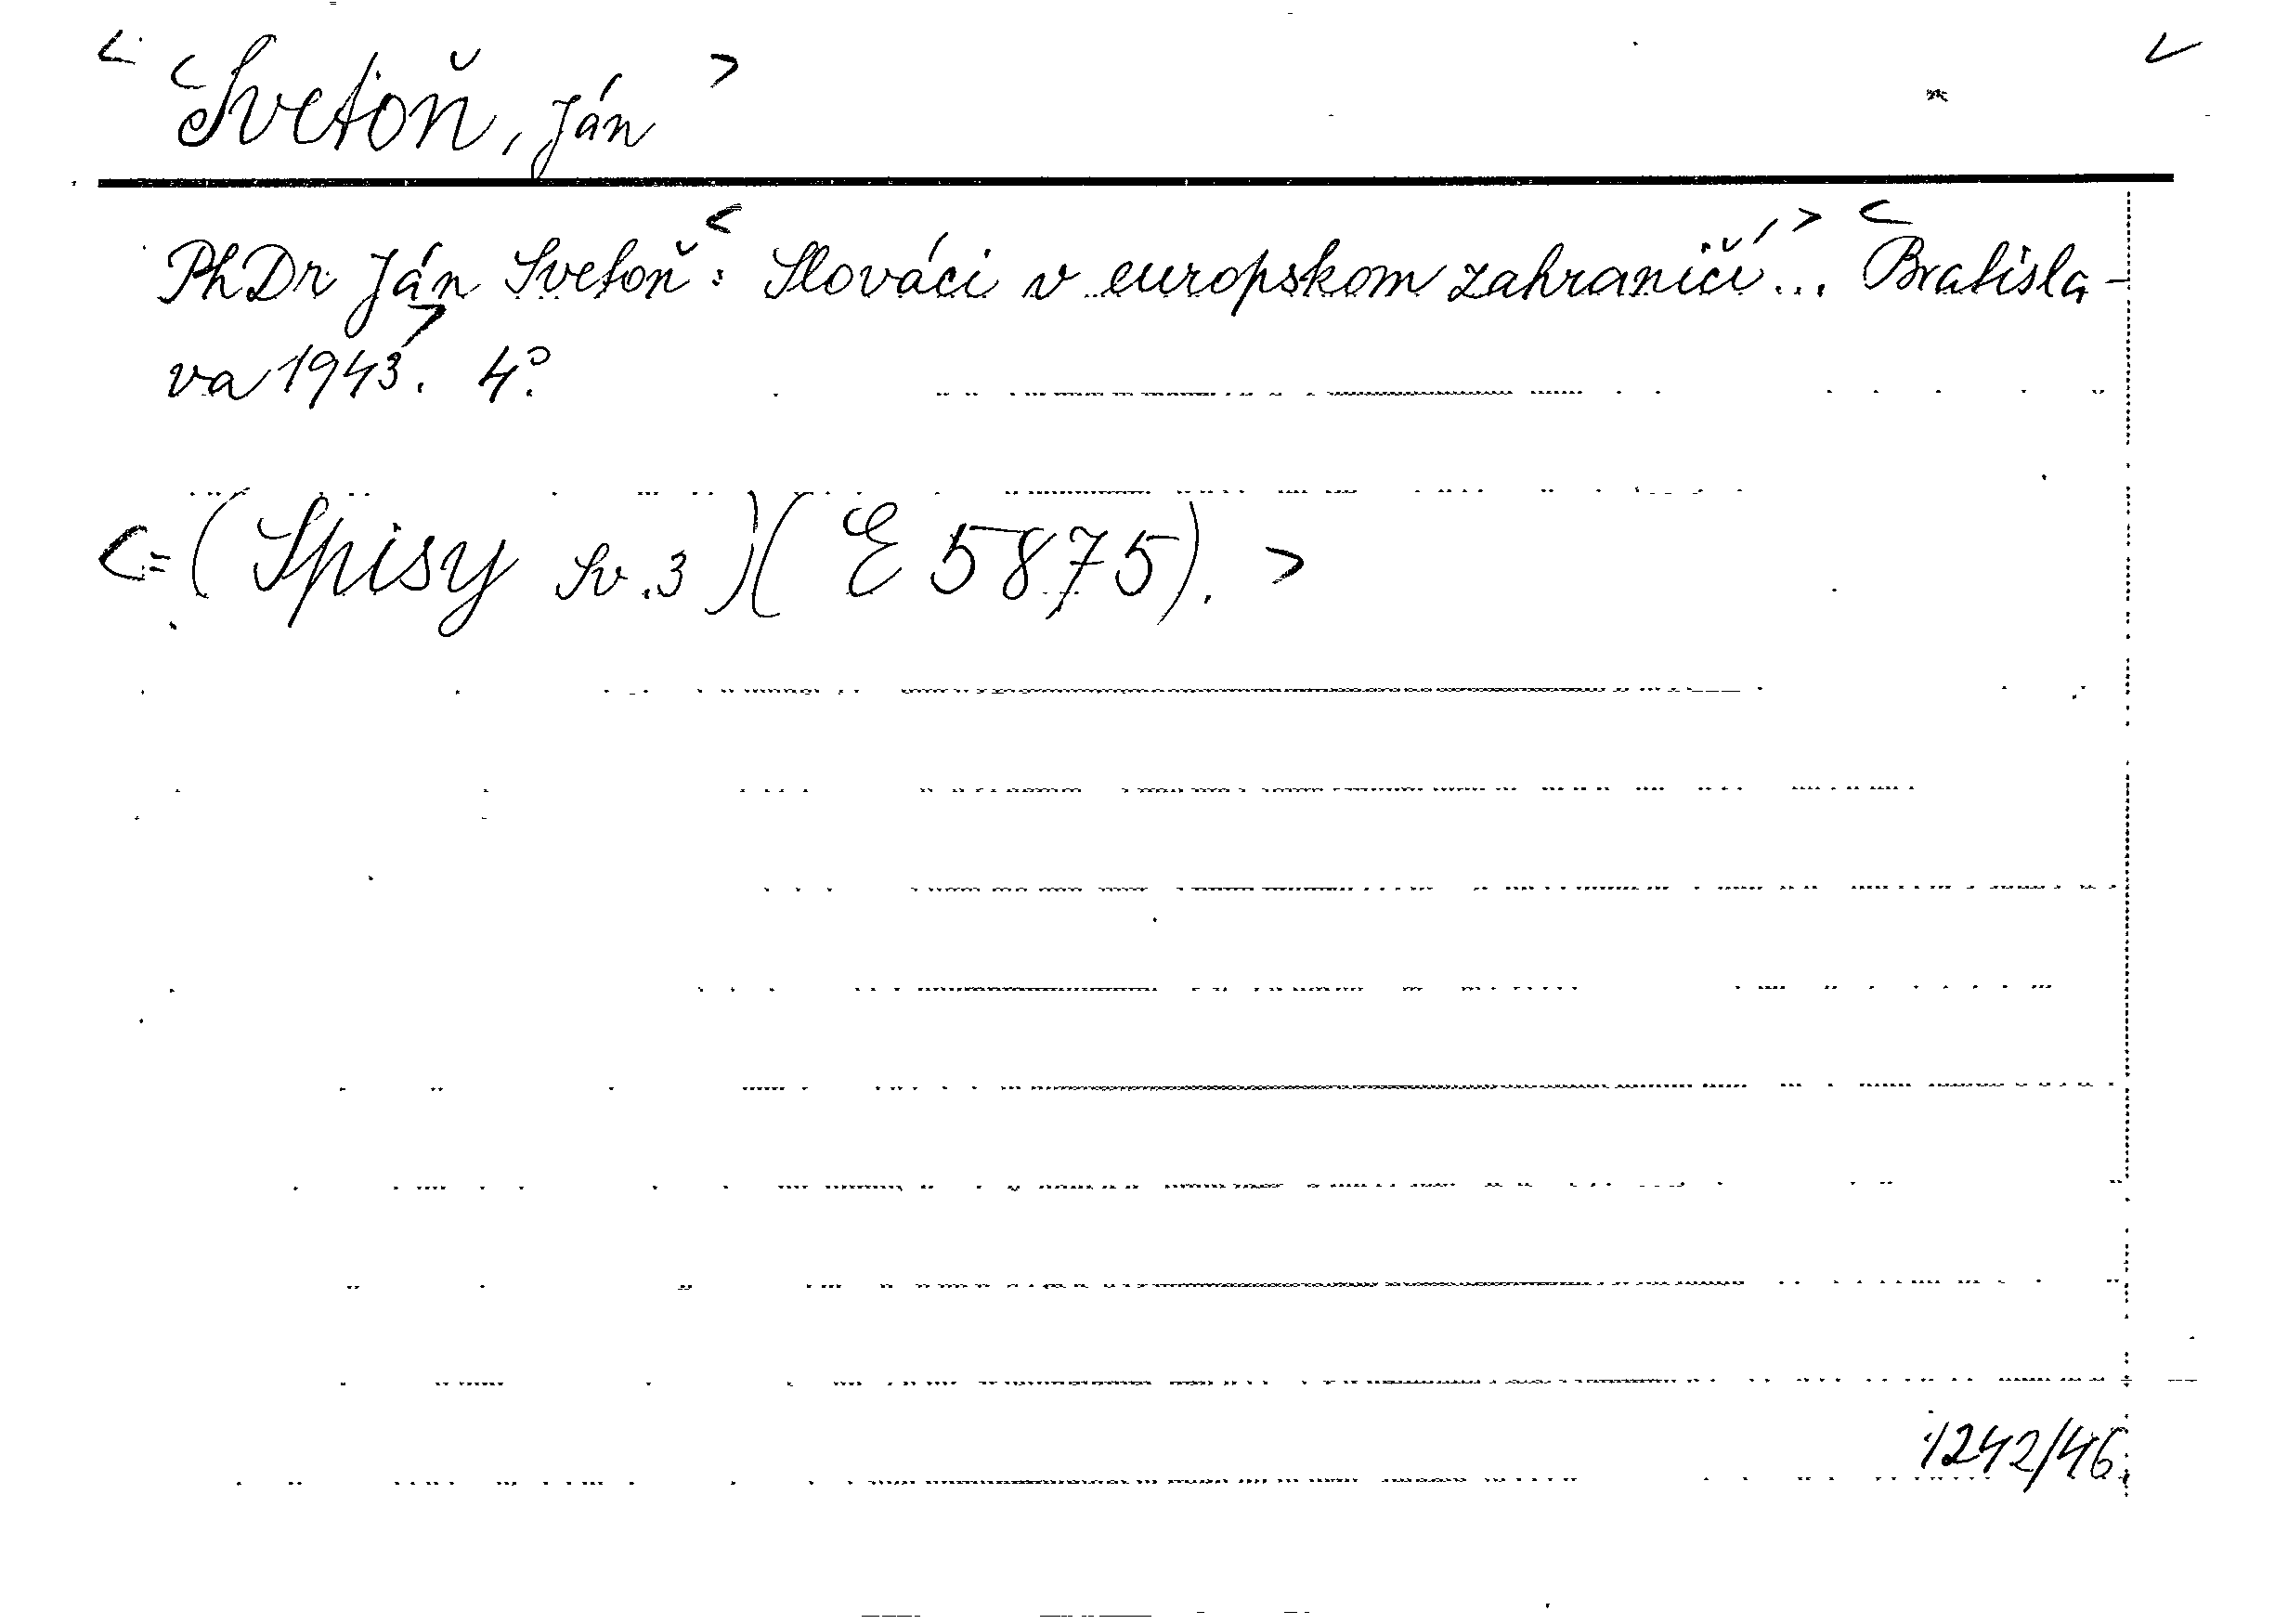 < <Svetoň, Ján >
PhDr Ján Svetoň: < Slováci v europskom zahraničí... > < Bratisla-
va 1943. > 4°.
<= (Spisy Sv. 3) (E 5875). >
1242/46.